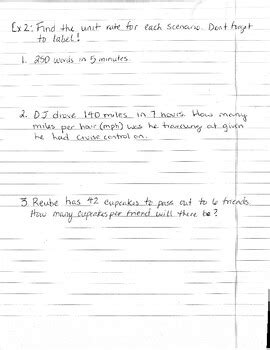 Ex 2: Find the unit rate for each scenario. Don't forget
to label!
1. 250 words in 5 minutes.
2. DJ drove 140 miles in 7 hours. How many
miles per hour (mph) was he traveling at given
he had cruise control on.
3. Reube has 42 cupcakes to pass out to 6 friends.
How many cupcakes per friend will there be?